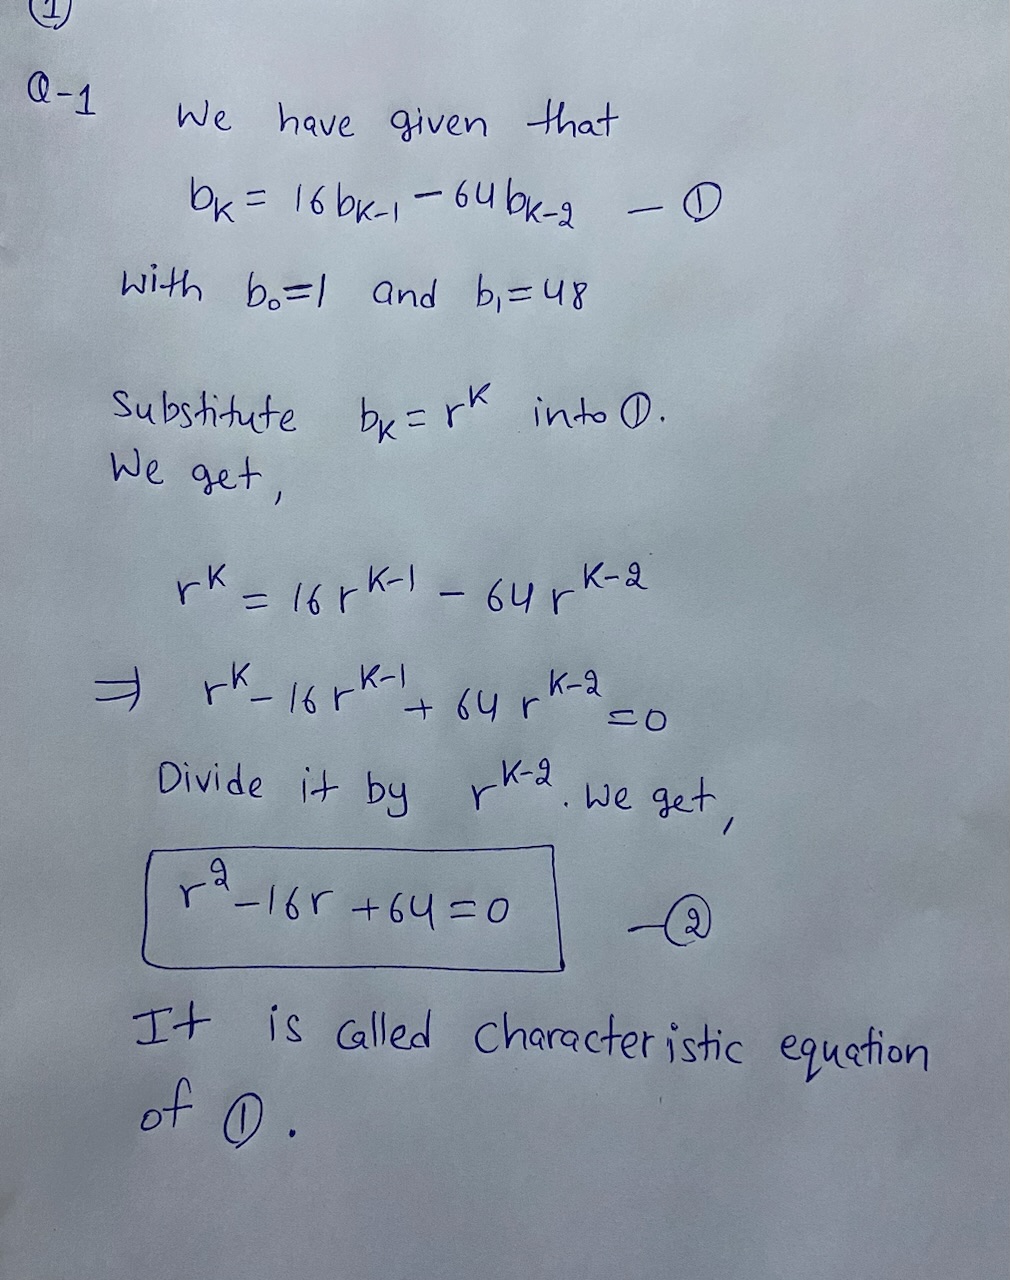 ①
Q-1
We have given that
bₖ = 16bₖ₋₁ - 64bₖ₋₂ — ①
with b₀=1 and b₁=48
Substitute bₖ = rᴷ into ①.
We get,
rᴷ = 16rᴷ⁻¹ - 64rᴷ⁻²
⇒ rᴷ - 16rᴷ⁻¹ + 64rᴷ⁻² = 0
Divide it by rᴷ⁻². We get,
r² - 16r + 64 = 0 — ②
It is called characteristic equation
of ①.